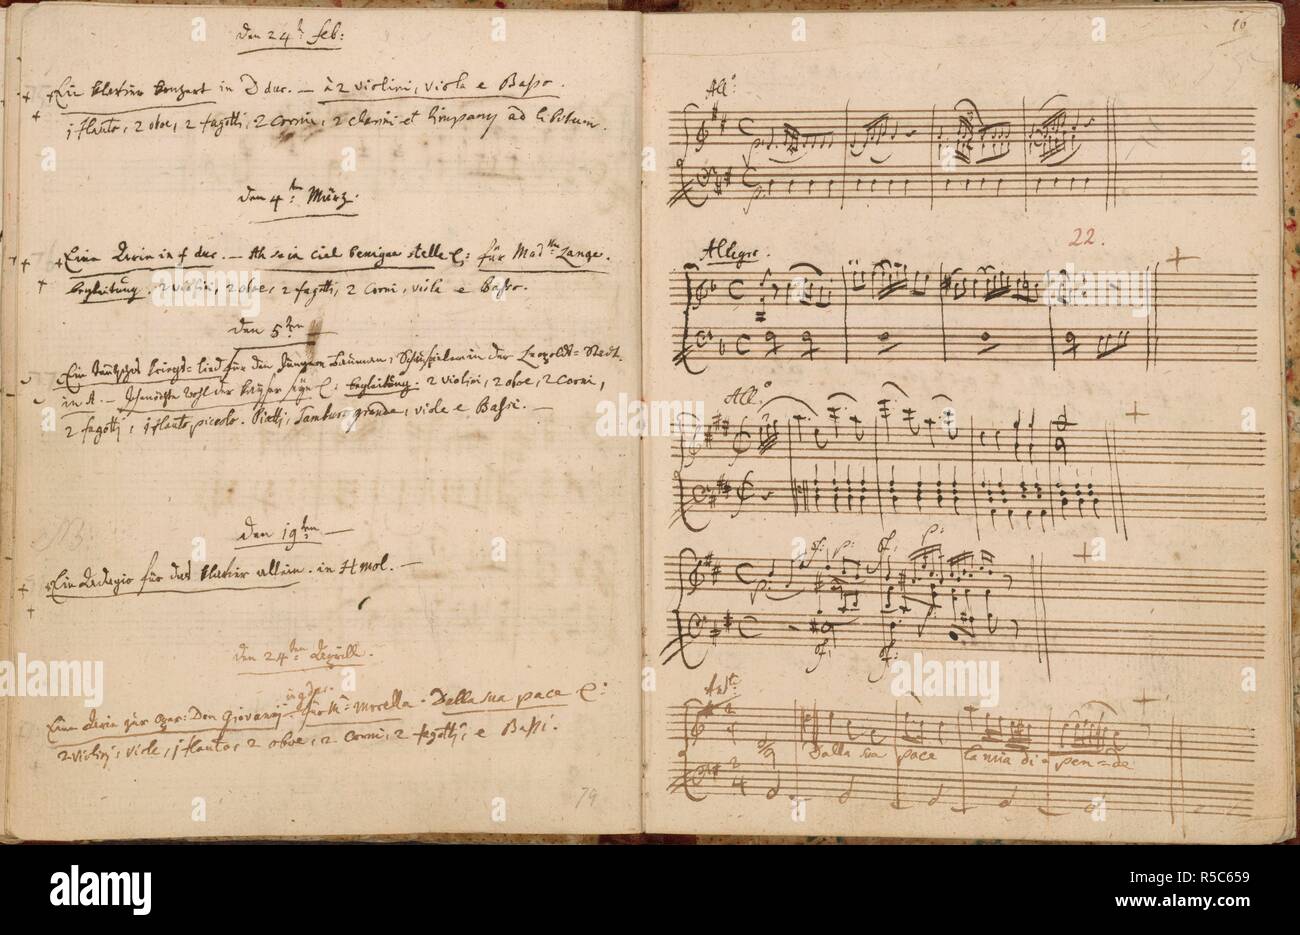 den 24t feb:
Ein klavier konzert in D dur. — à 2 violini, viola e Basso.
1 flauto, 2 oboe, 2 fagotti, 2 corni, 2 clarini et timpany ad libitum.
den 4t März.
Eine Aria in f dur. — Ah se in ciel benigne stelle &: für Mad:me Lange.
begleitung. 2 violini, 2 oboe, 2 fagotti, 2 Corni, viola e Basso.
den 5ten
Ein teutsches kriegs-lied für den Jungern Bauman, Schauspieler in der Leopoldt=Stadt.
in A. — Ich möchte wohl der kayser seyn &: begleitung. 2 violini, 2 oboe, 2 Corni,
2 fagotti, 1 flauto piccolo. Piatti, Tamburo grande, viole e Bassi. —
den 19ten —
Ein Adagio für das klavier allein. in H mol. —
den 24ten Aprill.
in g dur.
Eine Aria zur oper: Don Giovanni - für M:r Morella. Dalla sua pace &:
2 violini, viole, 1 flauto, 2 oboe, 2 corni, 2 fagotti, e Bassi.
79
16
All:o
p.
p.
22.
Allegro.
All:o
sf: p: sf: p:
p:
sf: sf:
And:te
Dalla sua pace la mia di= pen=de
alamy
Image ID: R5C659
www.alamy.com